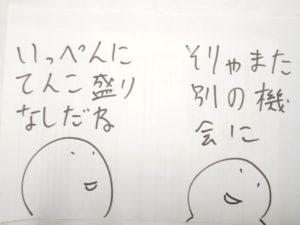 いっぺんに
てんこ盛り
なしだね
そりゃまた
別の機
会に